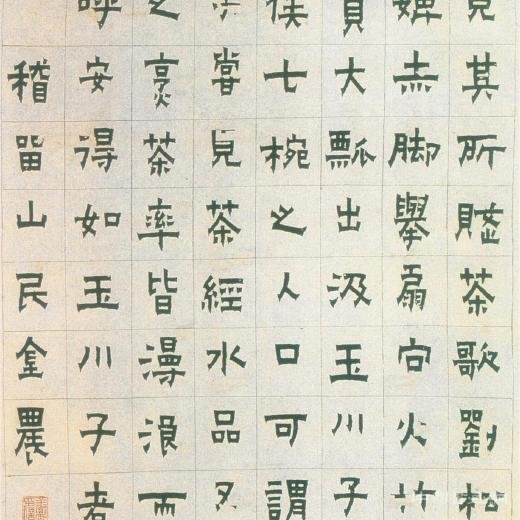 見其所賦茶歌劉松
婢赤脚舉扇向火竹
負大瓢出汲玉川子
俟七椀之入口可謂
嘗見茶經水品又
之烹茶率皆漫浪而
呼安得如玉川子者
稽畱山民金農